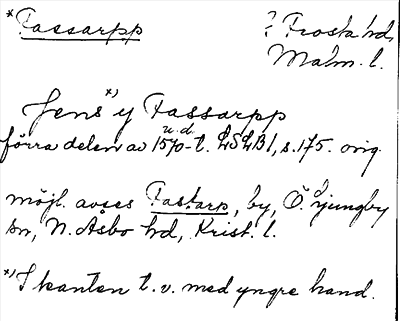 *Fassarpp
? Frosta hd,
Malm. l.
Jens *) y Fassarpp
u.d.
förra delen av 1570-t. LSLB1, s. 175. orig.
möjl. avses Fastarp, by, Ö. Ljungby
sn, N. Åsbo hd, Krist. l.
*) I kanten t.v. med yngre hand.